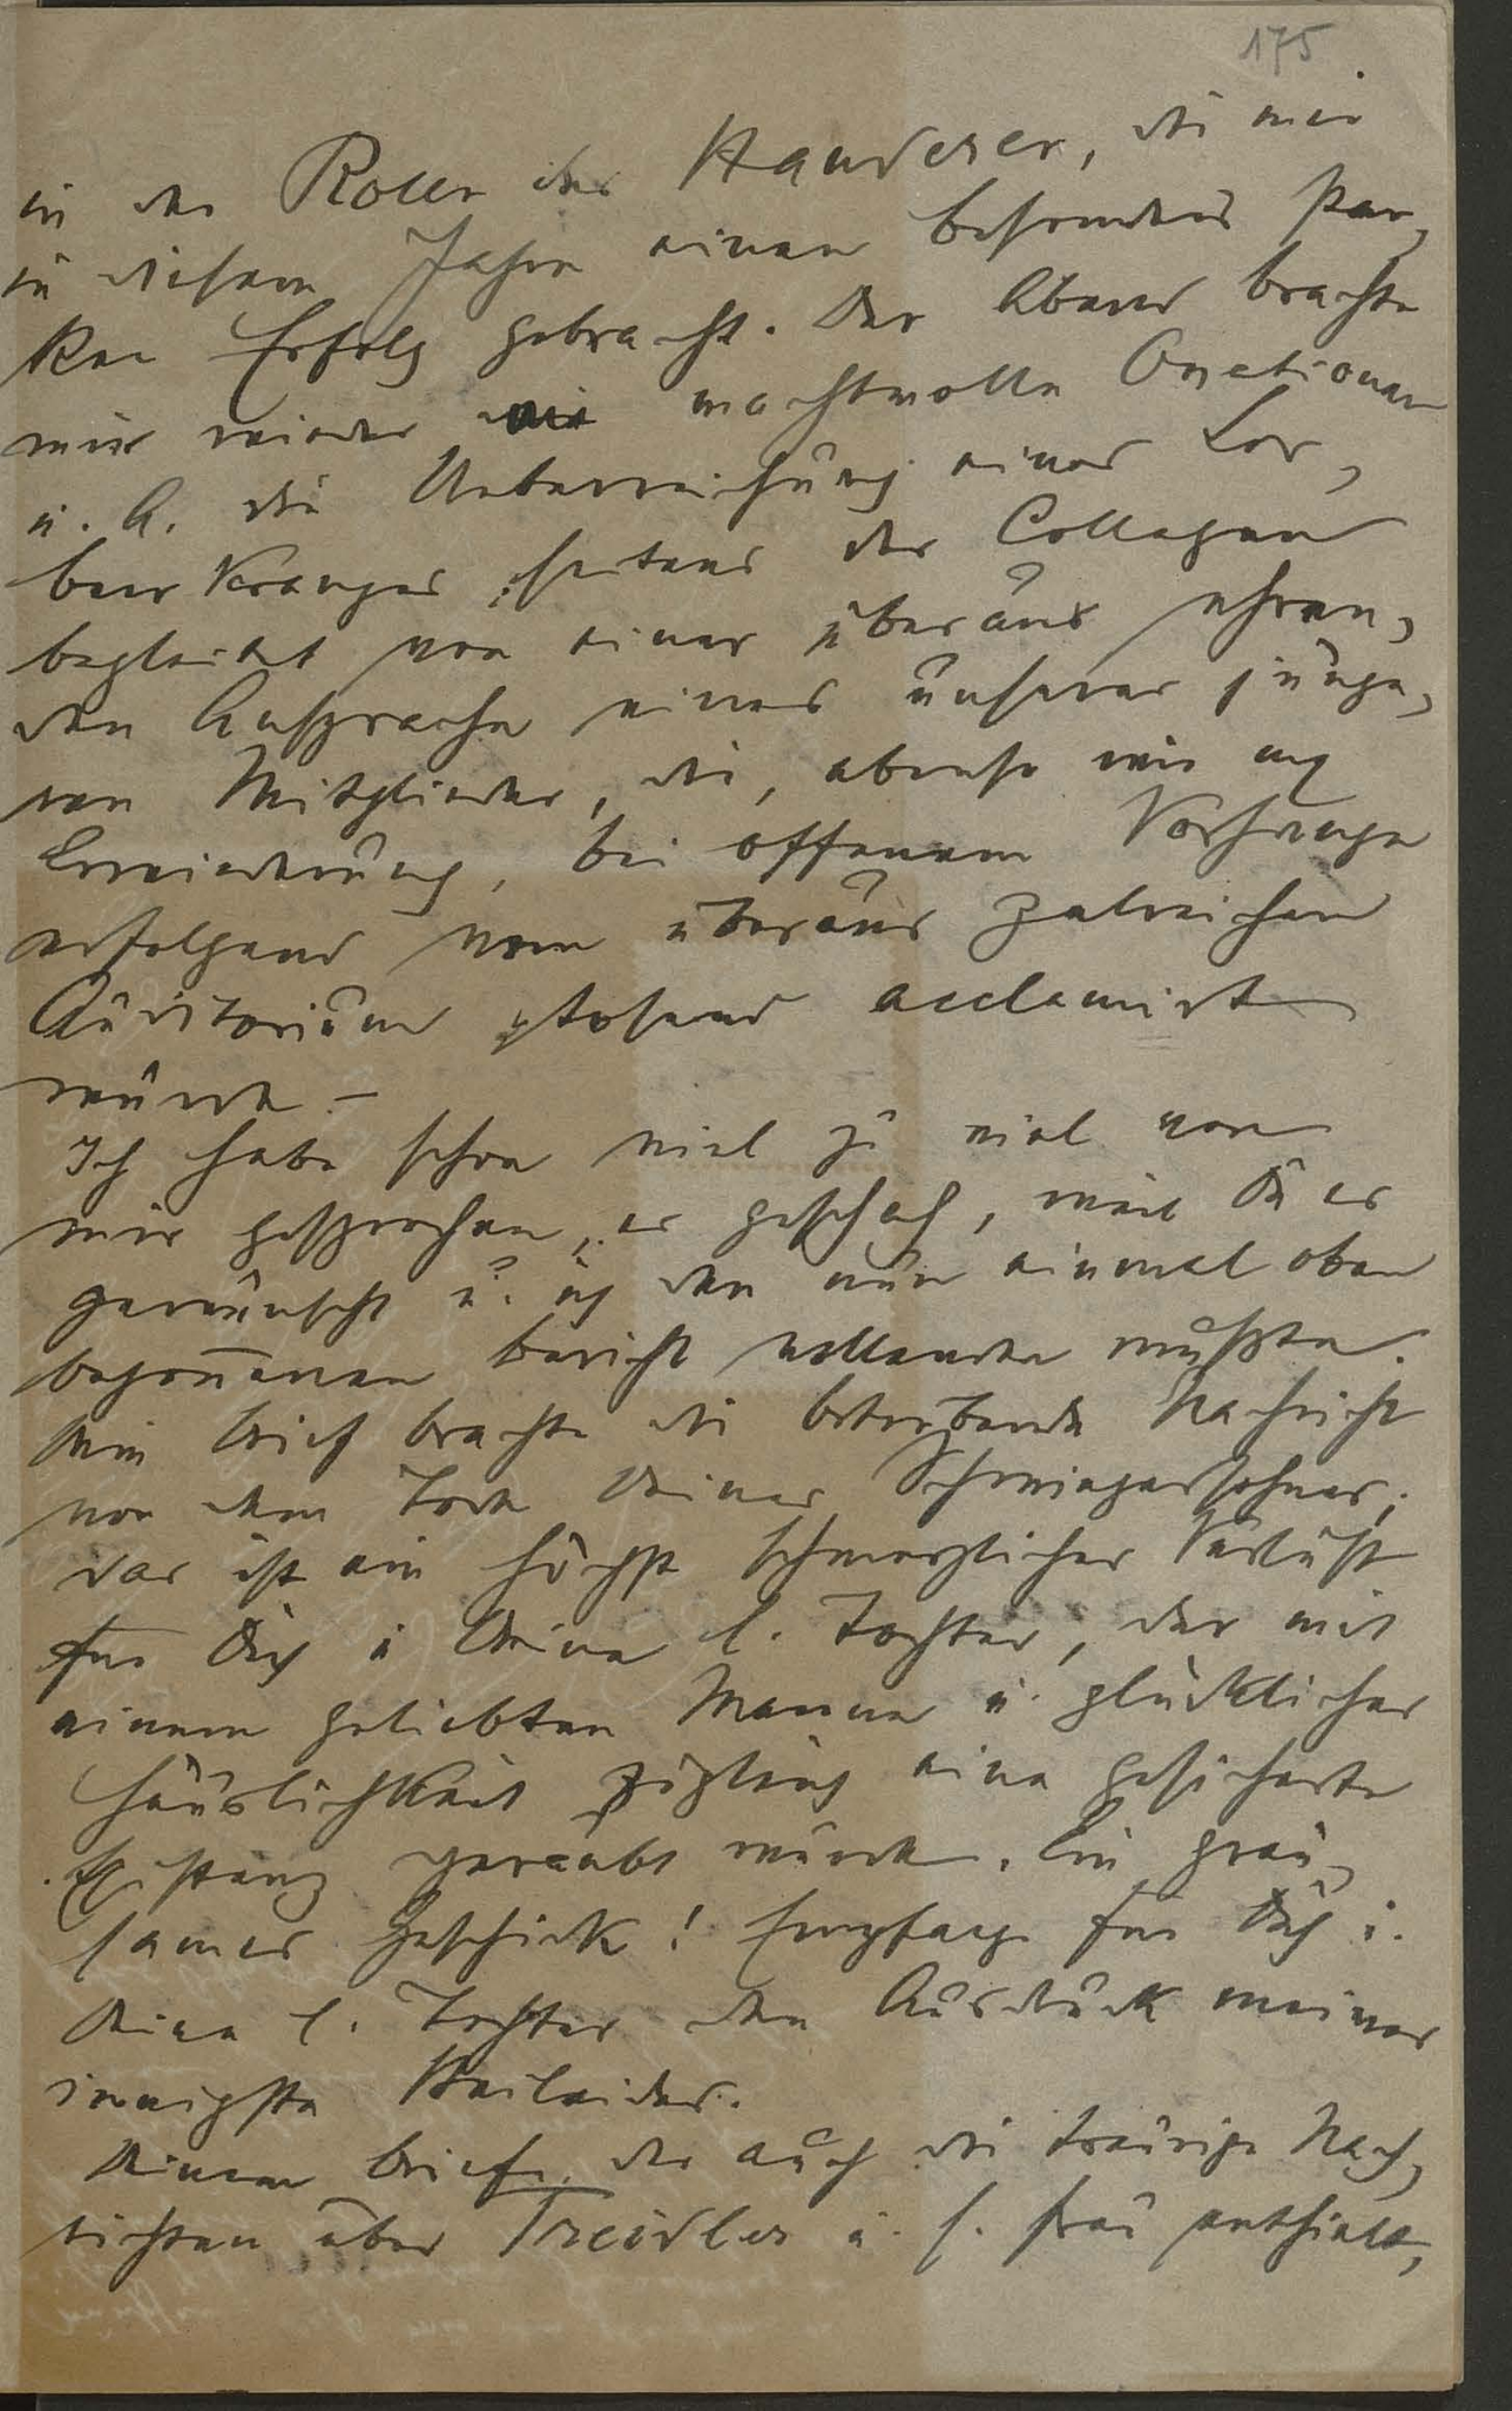 175
in der Rolle des Hauderer, die mir
in diesem Jahre einen besonders star,
ken Erfolg gebracht. Der Abend brachte
mir wieder machtvolle Ovationen
u. A. die Ueberreichung eines Lor,
beer Kranzes seitens der Collegen
begleitet von einer überaus ehren,
den Ansprache eines unserer jünge,
ren Mitglieder, die, ebenso wie
Erwiederung, bei offenem Vorhange
erfolgend vom überaus zalreichen
Auditorium tosend acclamirt
wurde. –
Ich habe schon viel zu viel von
mir gesprochen, es geschah, weil Du es
gewünscht u. ich den nun einmal oben
begonnenen Bericht vollenden mußte.
Dein Brief brachte die betrübende Nachricht
von dem Tode Deines Schwiegersohnes;
das ist ein höchst schmerzlicher Verlust
für Dich u Deine l. Tochter, der mit
einem geliebten Manne u. glücklicher
Häuslichkeit zugleich eine gesicherte
Existenz geraubt wurde. Ein grau,
sames Geschick! Empfange für Dich u.
Deine l. Tochter den Ausdruck meines
innigsten Beileides.
Deinem Briefe, der auch die traurige Nach,
richten über Treidler u. s. Frau enthielt,